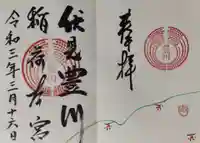 奉拝
伏見豊川
稲荷本宮
令和二年三月十六日